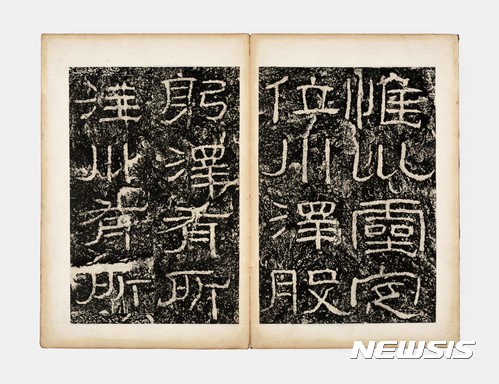 惟巛靈定
位川澤股
躬澤有所
注川有所
NEWSIS